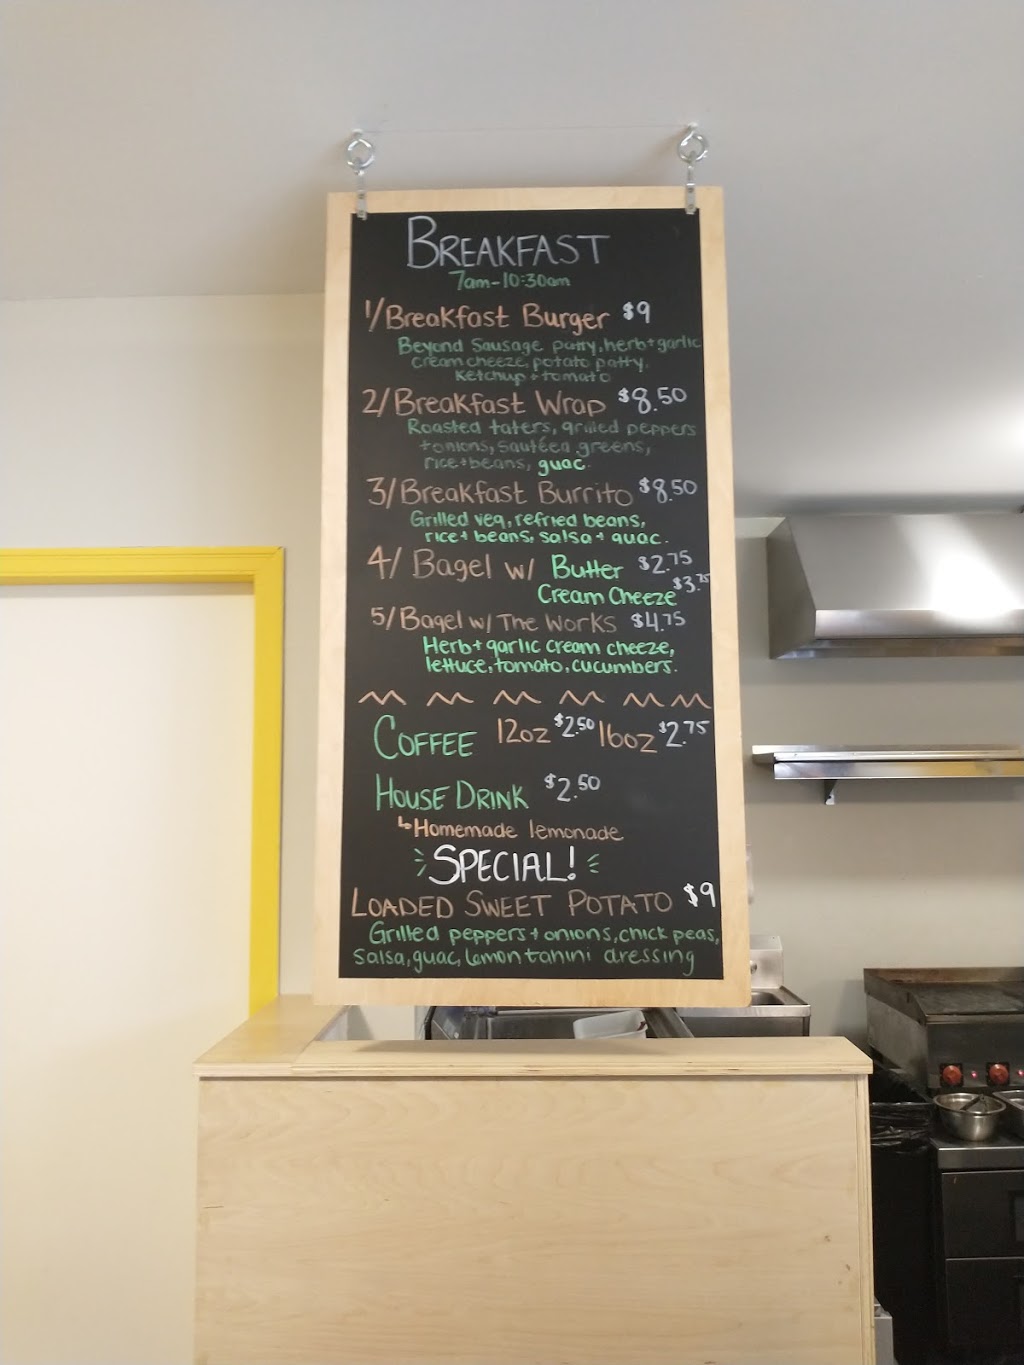 BREAKFAST
7am-10:30am
1/Breakfast Burger $9
Beyond Sausage patty, herb+garlic
cream cheeze, potato patty,
Ketchup + tomato
2/Breakfast Wrap $8.50
Roasted taters, grilled peppers
+onions, sautéed greens,
rice+beans, guac.
3/Breakfast Burrito $8.50
Grilled veg, refried beans,
rice+ beans, salsa + guac.
4/ Bagel w/ Butter $2.75
Cream Cheeze $3.75
5/Bagel w/ The Works $4.75
Herb+ garlic cream cheeze,
lettuce, tomato, cucumbers.
COFFEE 12oz $2.50 16oz $2.75
HOUSE DRINK $2.50
↳Homemade lemonade
SPECIAL!
LOADED SWEET POTATO $9
Grilled peppers + onions, chick peas,
salsa, guac, lemon tahini dressing